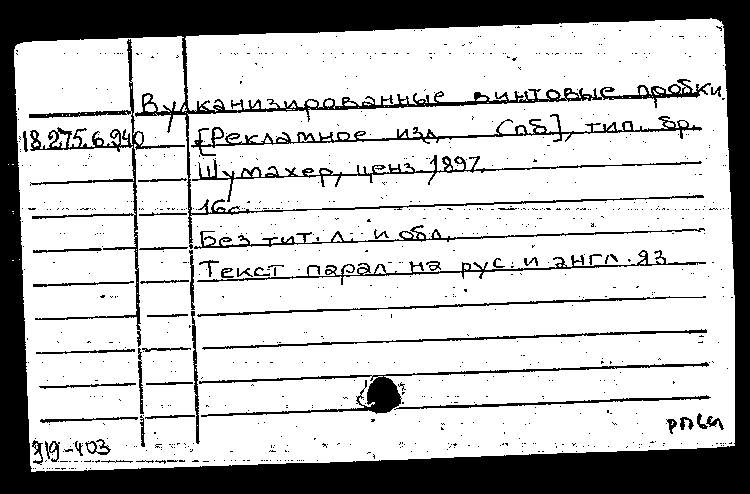 Вулканизированные винтовые пробки.
18.275.6.940 [Рекламное изд. Спб], тип. бр.
Шумахер, ценз. 1897.
16с.
Без тит. л. и обл.
Текст парал. на рус. и англ. яз.
919-403